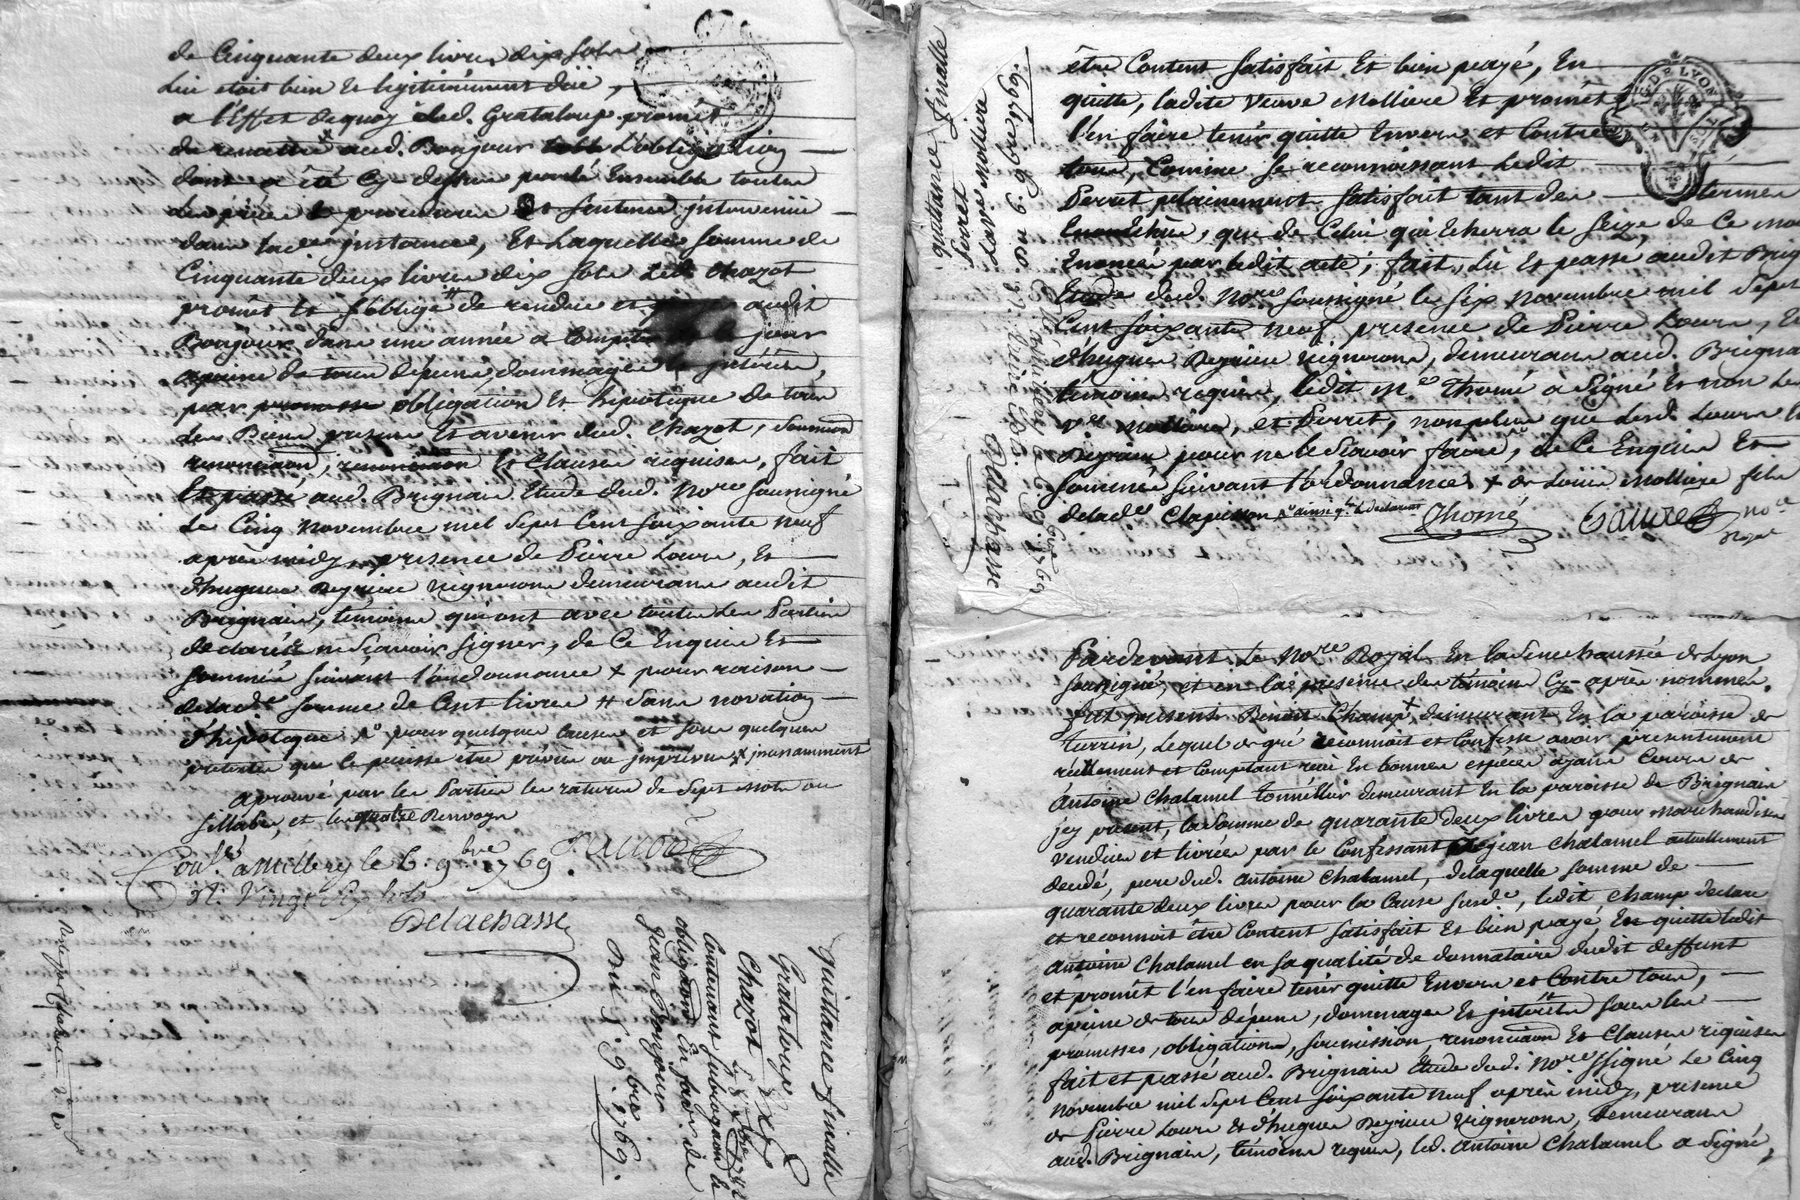 de Cinquante deux livres dix sols
Lui etoit bien et legitimement düe,
a l'Effet dequoy led. Grataloup promet
de remettre aud. Bonjour l'obligation
dont a été Cy dessus parlé Ensemble toutes
les pieces et procedures et sentence intervenüe
dans lad. instance, Et Laquelle somme de
Cinquante deux livres dix sols led. Chazot
promet et s'oblige de rendre et audit
Bonjour dans une année a Compter jour
apeine de tous depens, dommages et intérêts,
par promesse obligation Et hipotéque de tous
Les Biens presens Et avenir dud. Chazot, soumission
renonciaon, renonciaon Et Clauses requises, fait
Et passé aud. Brignais Etude dud. Nore soussigné
Le Cinq novembre mil Sept Cent soixante neuf
apres midy, presence de Pierre Loure, Et
d'hugues Reyrieu vignerons demeurans audit
Brignais, témoins qui ont avec toutes Les Parties
declaré ne Sçavoir Signer, de Ce Enquis Et
sommés suivant l'ordonnance + pour raison
delade somme de Cent livres # sans novation
d'hipoteque pour quelque Cause et sous quelque
pretexte que le puisse être prévu ou imprévu x
aprouvé par les Parties les ratures de Sept mots ou
sillabes, et les quatre Renvoys
Coné. a Millery le 6. 9bre 1769.
R. Vingt Six sols
Delachasse
quittance finalle
Grataloup
Chazot
Contenant subrogaon &
obligaon En faveur de
Jean Bonjour
Du 5. 9bre 1769.
quittance finalle
Perret
La ve Molliere
Delachasse
être Content Satisfait Et bien payé, En
quitte, ladite veuve Molliere Et promêt
l'en faire tenir quitte Envers et Contre
tous, Comme se reconnoissant Ledit
Perret pleinement satisfait tant des termes
que de Celui qui Echerra le Seize de Ce mois
Enoncés par ledit acte, fait, Lû Et passé audit Brig
Etude dud. Nore soussigné le six novembre mil Sept
Cent soixante neuf, presence de Pierre Loure, Et
d'hugues Reyrieu vignerons, demeurans aud. Brignais
témoins requis, ledit Me. Thomé à Signé Et non La
ve Molliere, et Perret, non plus que lesd. Loure &
Reyrieu pour ne le Sçavoir faire, de Ce Enquis Et
sommés suivant l'ordonnance x de Louis Molliere fils
delade Clapisson Thomé
VILLE DE LYON
Pardevant Le Nore Royal En la Senechaussée de Lyon
soussigné, et en la presence des témoins Cy-apres nommés,
fut present Benoit Champ + demeurant En la paroisse de
Turrin, Lequel de gré reconnoit et Confesse avoir présentement
réellement et Comptant reçu En bonnes espéces ayant Cours de
Antoine Chalamel tonnellier demeurant En la paroisse de Brignais
icy present, la somme de quarante deux livres pour marchandises
vendües et livrées par le Confessant à jean Chalamel actuellement
decedé, pere dud. Antoine Chalamel, delaquelle somme de
quarante deux livres pour la Cause susde, ledit Champ declare
et reconnoit être Content Satisfait Et bien payé, En quitte ledit
Antoine Chalamel en sa qualité de donnataire dudit deffunt
et promêt l'en faire tenir quitte Envers et Contre tous,
apeine de tous dépens, dommages Et intérêts sous les
promesses, obligations, soumission, renonciaon Et Clauses requises
fait et passé aud. Brignais Etude dud. Nore ssigné Le Cinq
novembre mil Sept Cent Soixante neuf après midy, presence
de Pierre Loure Et d'hugues Reyrieu vignerons, demeurans
aud. Brignais, témoins requis, led. Antoine Chalamel a Signé,